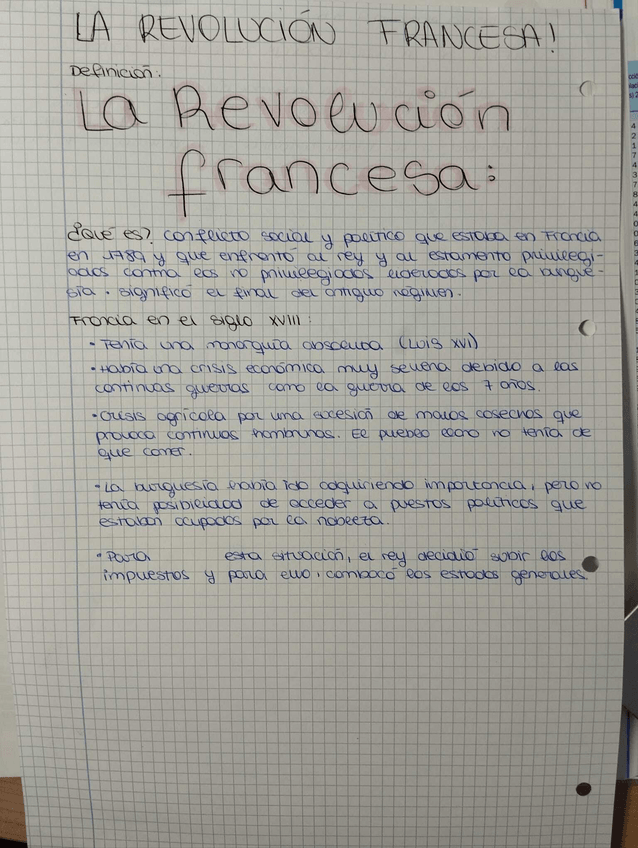 LA REVOLUCIÓN FRANCESA!
Definición:
La Revolución
francesa:
¿Qué es? conflicto social y político que estaba en Francia
en 1789 y que enfrentó al rey y al estamento privilegi-
ados contra los no privilegiados liderados por la burgue-
sía. significó el final del antiguo régimen.
Francia en el siglo XVIII:
• Tenía una monarquía absoluta (Luis XVI)
• Había una crisis económica muy severa debido a las
continuas guerras como la guerra de los 7 años.
• crisis agrícola por una sucesión de malas cosechas que
provoca continuas hambrunas. El pueblo llano no tenía de
que comer.
• La burguesía había ido adquiriendo importancia, pero no
tenía posibilidad de acceder a puestos políticos que
estaban ocupados por la nobleza.
• Para esta situación, el rey decidió subir los
impuestos y para ello, combocó los estados generales